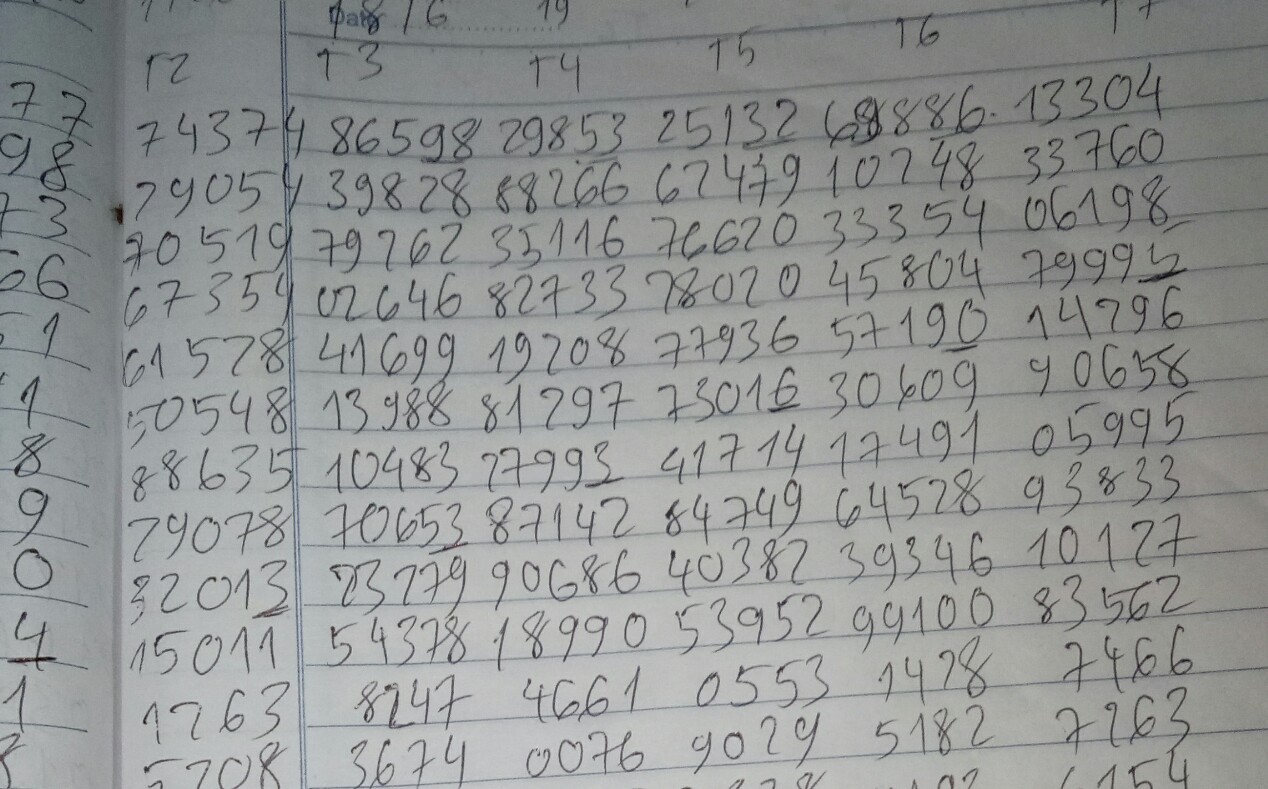 Date 18/6 19
T2 T3 T4 T5 T6 T7
77 74374 86598 29853 25132 68886. 13304
98 29054 39828 88266 62479 10248 33760
73 70519 79262 35116 76620 33354 06198
66 67354 02646 82733 28020 45804 79995
1 61528 41699 19208 77936 57190 14296
1 50548 13988 81297 73016 30609 90658
8 88635 10483 27993 41714 17491 05995
9 29078 70653 87142 84749 64528 93833
0 32013 23279 90686 40382 39346 10127
4 15011 54378 18990 53952 99100 83562
1 1263 8247 4661 0553 1428 7466
5208 3674 0076 9029 5182 7263